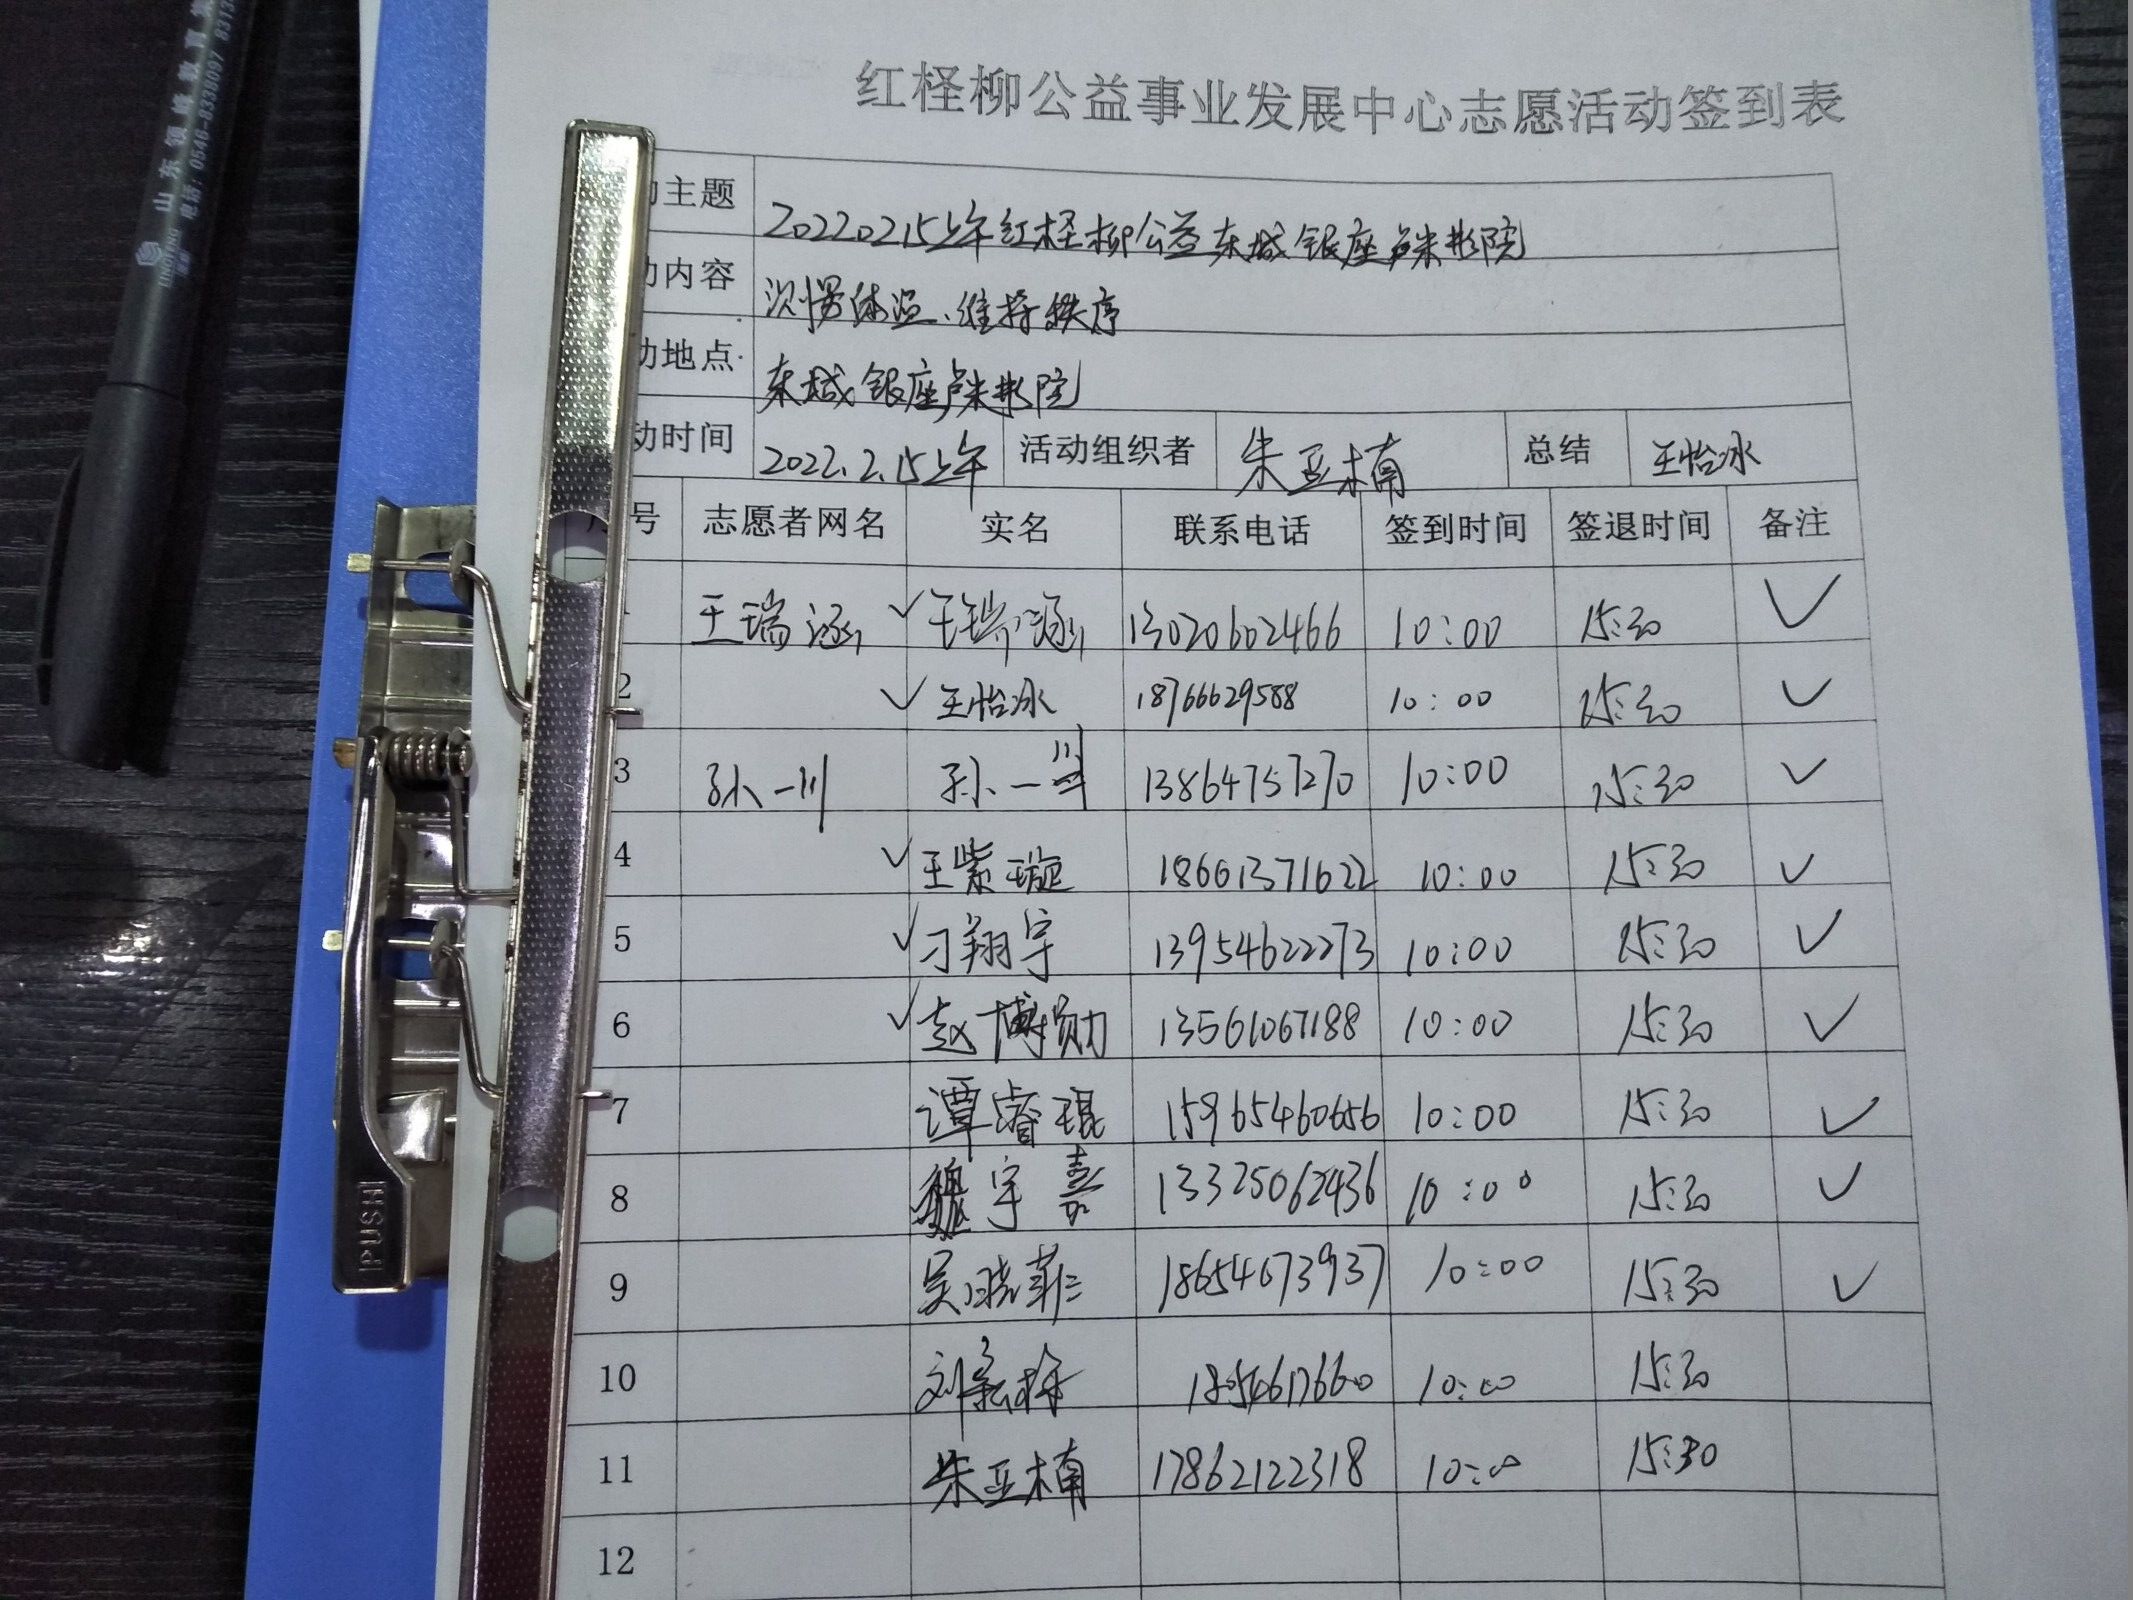 红柽柳公益事业发展中心志愿活动签到表
动主题 20220215上午红柽柳公益东城银座卢米埃影院
动内容 测温、维持秩序
动地点 东城银座卢米影院
动时间 2022.2.15上午 活动组织者 朱亚楠 总结 王怡冰
号 志愿者网名 实名 联系电话 签到时间 签退时间 备注
1 王瑞涵 ✓ 王瑞涵 13020602466 10:00 15:30 ✓
2 ✓ 王怡冰 18766629588 10:00 15:30 ✓
3 孙一川 孙一川 13864757270 10:00 15:30 ✓
4 ✓ 王紫璇 18661371622 10:00 15:30 ✓
5 ✓ 刁翔宇 13954622273 10:00 15:30 ✓
6 ✓ 赵博勋 13561067188 10:00 15:30 ✓
7 谭睿琨 15965460656 10:00 15:30 ✓
8 魏宇嘉 13325062436 10:00 15:30 ✓
9 吴晓菲 18654673937 10:00 15:30 ✓
10 刘 10:00 15:30
11 朱亚楠 17862122318 10:00 15:30
12
PUSH
山东领峰教育
电话：0546-8338097